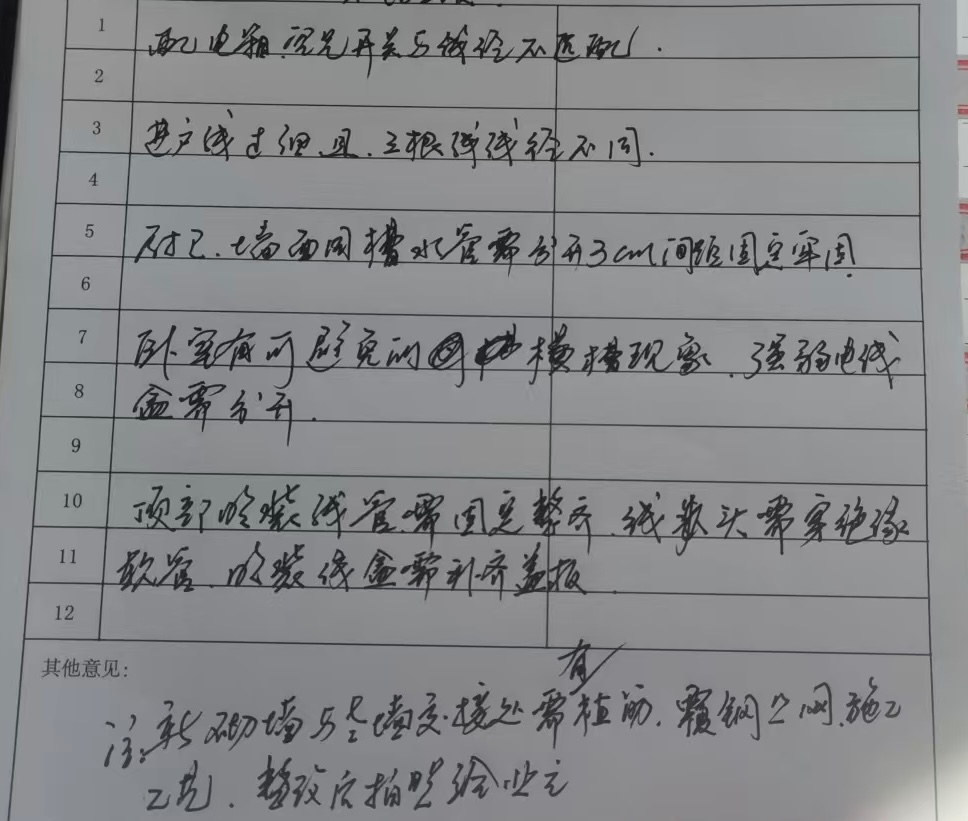 1
配电箱,空开开关与线径不匹配.
2
3
进户线过细且.三根线线径不同.
4
5
墙面开槽水管需分开3cm间距固定牢固
6
7
卧室有可避免的横槽现象.强弱电线
8
盒需分开.
9
10
顶部明装线管需固定整齐.线接头需穿绝缘
11
软管.明装线盒需补齐盖板.
12
其他意见:
有
注:新砌墙与老墙交接处需植筋.覆钢丝网.施工
工艺.整改后拍照给业主